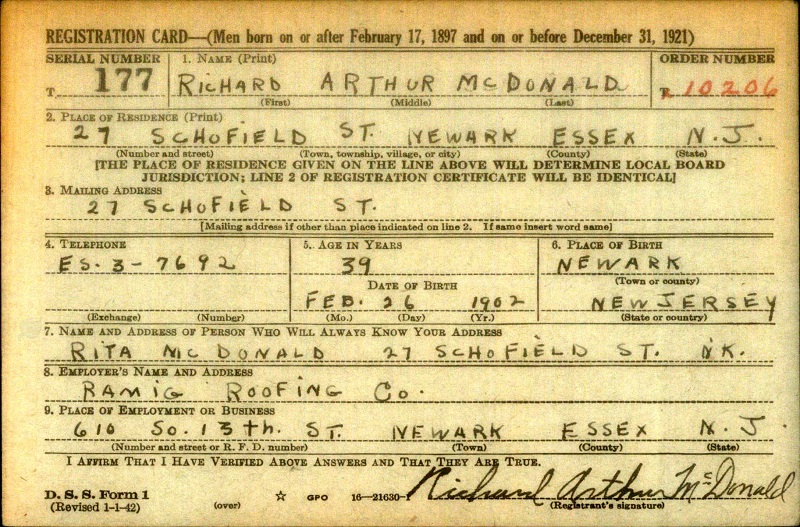 REGISTRATION CARD—(Men born on or after February 17, 1897 and on or before December 31, 1921)
SERIAL NUMBER 1. NAME (Print) ORDER NUMBER
T 177 RICHARD ARTHUR MCDONALD T 10206
(First) (Middle) (Last)
2. PLACE OF RESIDENCE (Print)
27 SCHOFIELD ST. NEWARK ESSEX N.J.
(Number and street) (Town, township, village, or city) (County) (State)
[THE PLACE OF RESIDENCE GIVEN ON THE LINE ABOVE WILL DETERMINE LOCAL BOARD
JURISDICTION; LINE 2 OF REGISTRATION CERTIFICATE WILL BE IDENTICAL]
3. MAILING ADDRESS
27 SCHOFIELD ST.
[Mailing address if other than place indicated on line 2. If same insert word same]
4. TELEPHONE 5. AGE IN YEARS 6. PLACE OF BIRTH
ES-3-7692 39 NEWARK
DATE OF BIRTH (Town or county)
FEB. 26 1902 NEW JERSEY
(Exchange) (Number) (Mo.) (Day) (Yr.) (State or country)
7. NAME AND ADDRESS OF PERSON WHO WILL ALWAYS KNOW YOUR ADDRESS
RITA MCDONALD 27 SCHOFIELD ST. NK.
8. EMPLOYER'S NAME AND ADDRESS
RAMIG ROOFING CO.
9. PLACE OF EMPLOYMENT OR BUSINESS
610 SO. 13th. ST. NEWARK ESSEX N.J.
(Number and street or R. F. D. number) (Town) (County) (State)
I AFFIRM THAT I HAVE VERIFIED ABOVE ANSWERS AND THAT THEY ARE TRUE.
D. S. S. Form 1 Richard Arthur McDonald
(Revised 1-1-42) (over) ☆ GPO 16—21630-1 (Registrant's signature)